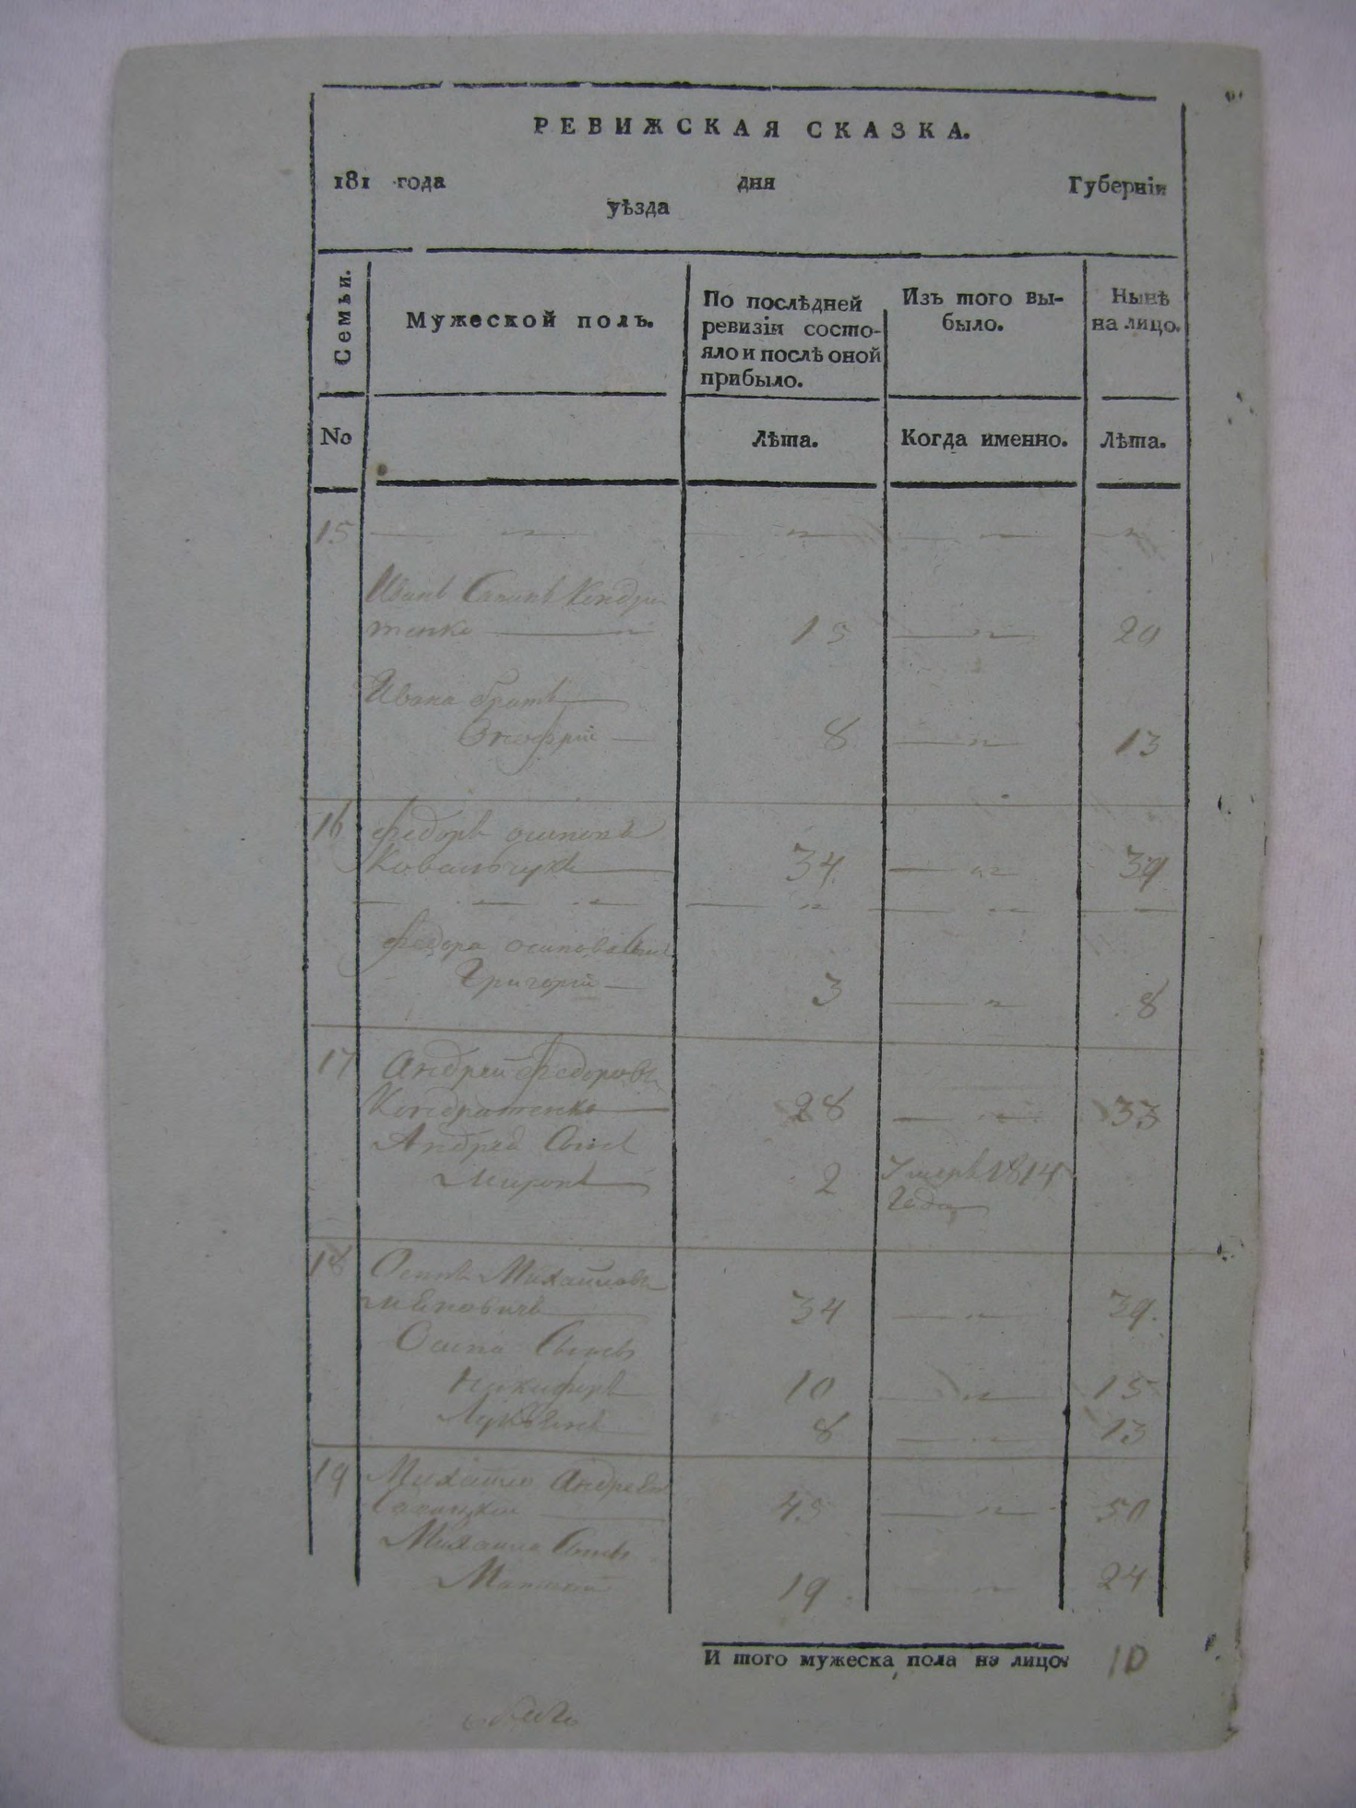 РЕВИЖСКАЯ СКАЗКА.
181 года дня Губерніи
уѣзда
Семьи.
Мужеской полъ.
По послѣдней ревизіи состояло и послѣ оной прибыло.
Изъ того выбыло.
Нынѣ на лицо.
No
Лѣта.
Когда именно.
Лѣта.
15
Иванъ Кондра
тенко 15 20
Ивана братъ
Онофрій 8 13
16 Федоръ осиповъ
Ковальчукъ 34 39
Федора осипова сынъ
Григорій 3 8
17 Андрей Федоровъ
Кондратенко 28 33
Андрея сынъ
Миронъ 2 Умеръ 1814
года
18 Осипъ Михайловъ
34 39
Осипа сыновья
Никифоръ 10 15
Лукьянъ 8 13
19 Михайло Андреевъ
45 50
Михайла сынъ
19 24
И того мужеска пола на лицо 10